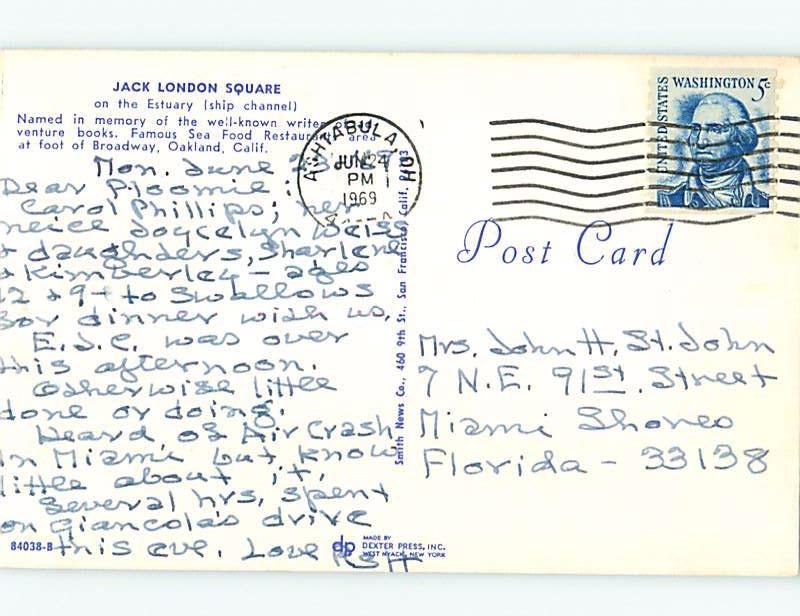 JACK LONDON SQUARE
on the Estuary (ship channel)
Named in memory of the well-known writer of ad-
venture books. Famous Sea Food Restaurant area
at foot of Broadway, Oakland, Calif.
Mon. June 23
Dear Ploomie:
Carol Phillips; her
neice Joycelyn Weiss
+ daughders, Sharlene
+ Kimberley - ages
12 + 9 - to Swallows
for dinner with us.
E.J.C. was over
this afternoon.
Otherwise little
done or doing.
Heard of Air Crash
in Miami but know
little about it.
Several hrs. spent
on Giancola's drive
this eve. Love RSH
84038-B
Smith News Co., 460 9th St., San Francisco, Calif. 94103
dp
MADE BY
DEXTER PRESS, INC.
WEST NYACK, NEW YORK
ASHTABULA, OH
JUN 24
PM
1969
UNITED STATES
WASHINGTON 5c
Post Card
Mrs. John H. St. John
7 N.E. 91st. Street
Miami Shores
Florida - 33138